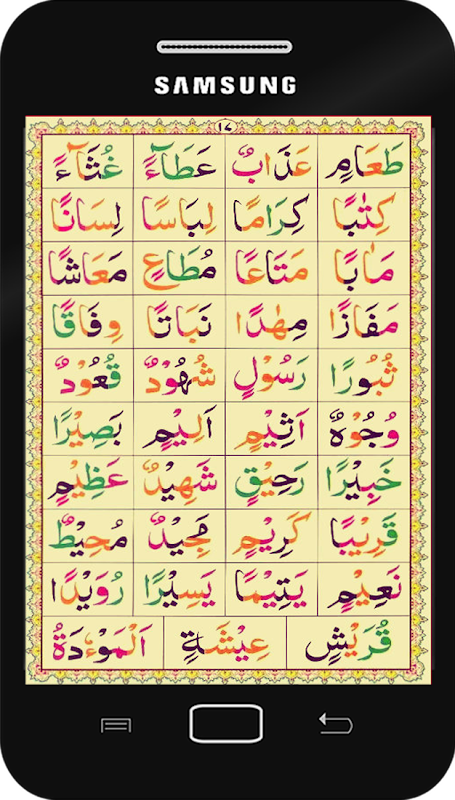 SAMSUNG
١٧
طَعَامٍ عَذَابٌ عَطَآءً غُثَآءً
كِتٰبًا كِرَامًا لِبَاسًا لِسَانًا
مَاٰبًا مَتَاعًا مُطَاعٍ مَعَاشًا
مَفَازًا مِهٰدًا نَبَاتًا وِفَاقًا
ثُبُورًا رَسُوْلٍ شُهُوْدٌ قُعُوْدٌ
وُجُوْهٌ اَثِيْمٍ اَلِيْمٍ بَصِيْرًا
خَبِيْرًا رَحِيْقٍ شَهِيْدٌ عَظِيْمٍ
قَرِيْبًا كَرِيْمٍ مَجِيْدٌ مُحِيْطٌ
نَعِيْمٍ يَتِيْمًا يَسِيْرًا رُوَيْدًا
قُرَيْشٍ عِيْشَةٍ اَلْمَوْءٗدَةُ